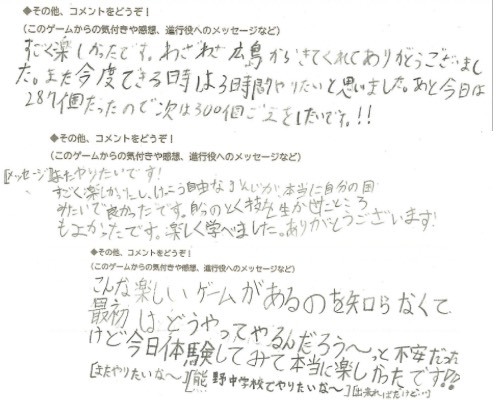 ◆その他、コメントをどうぞ！
(このゲームからの気付きや感想、進行役へのメッセージなど)
すごく楽しかったです。わざわざ広島からきてくれてありがうございまし
た。また今度できる時は3時間やりたいと思いました。あと今日は
287個だったので次は300個ごえをしたいです。!!
◆その他、コメントをどうぞ！
(このゲームからの気付きや感想、進行役へのメッセージなど)
[メッセージ]またやりたいです!
すごく楽しかったし、けっこう自由なかんじが本当に自分の国
みたいで良かったです。自分のとく技を生かせたところ
もよかったです。楽しく学べました。ありがとうございます!
◆その他、コメントをどうぞ！
(このゲームからの気付きや感想、進行役へのメッセージなど)
こんな楽しいゲームがあるのを知らなくて
最初はどうやってやるんだろう〜っと不安だった
けど今日体験してみて本当に楽しかったです!!
[またやりたいな〜][熊野中学校でやりたいな〜][出来ればだけど…]